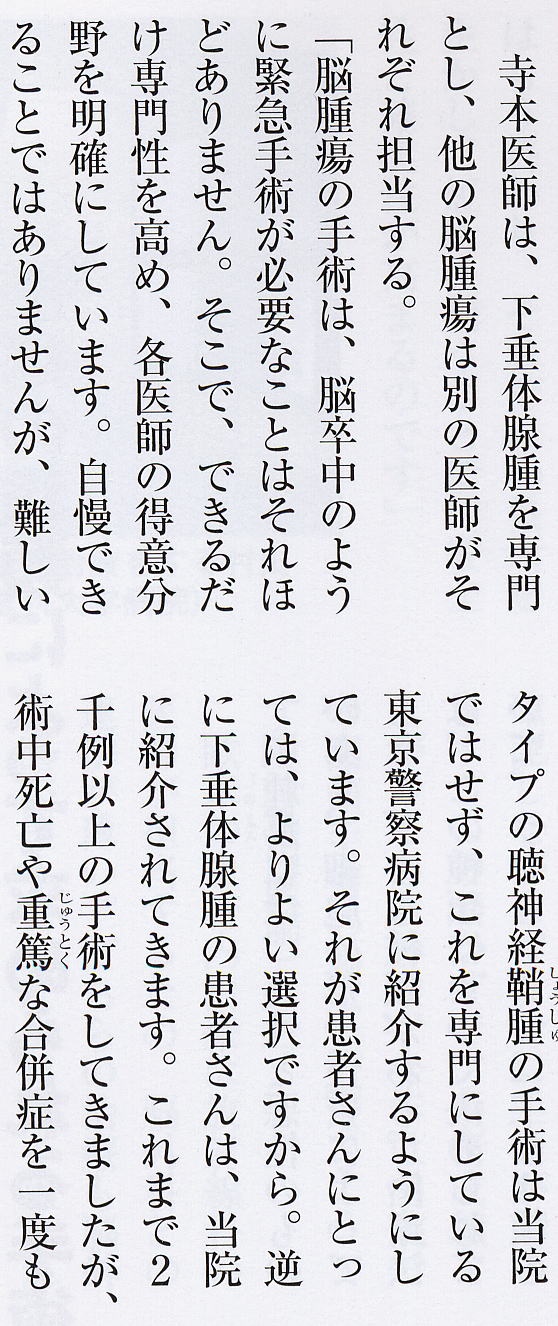 寺本医師は、下垂体腺腫を専門
とし、他の脳腫瘍は別の医師がそ
れぞれ担当する。
「脳腫瘍の手術は、脳卒中のよう
に緊急手術が必要なことはそれほ
どありません。そこで、できるだ
け専門性を高め、各医師の得意分
野を明確にしています。自慢でき
ることではありませんが、難しい
タイプの聴神経鞘腫の手術は当院
ではせず、これを専門にしている
東京警察病院に紹介するようにし
ています。それが患者さんにとっ
ては、よりよい選択ですから。逆
に下垂体腺腫の患者さんは、当院
に紹介されてきます。これまで2
千例以上の手術をしてきましたが、
術中死亡や重篤な合併症を一度も